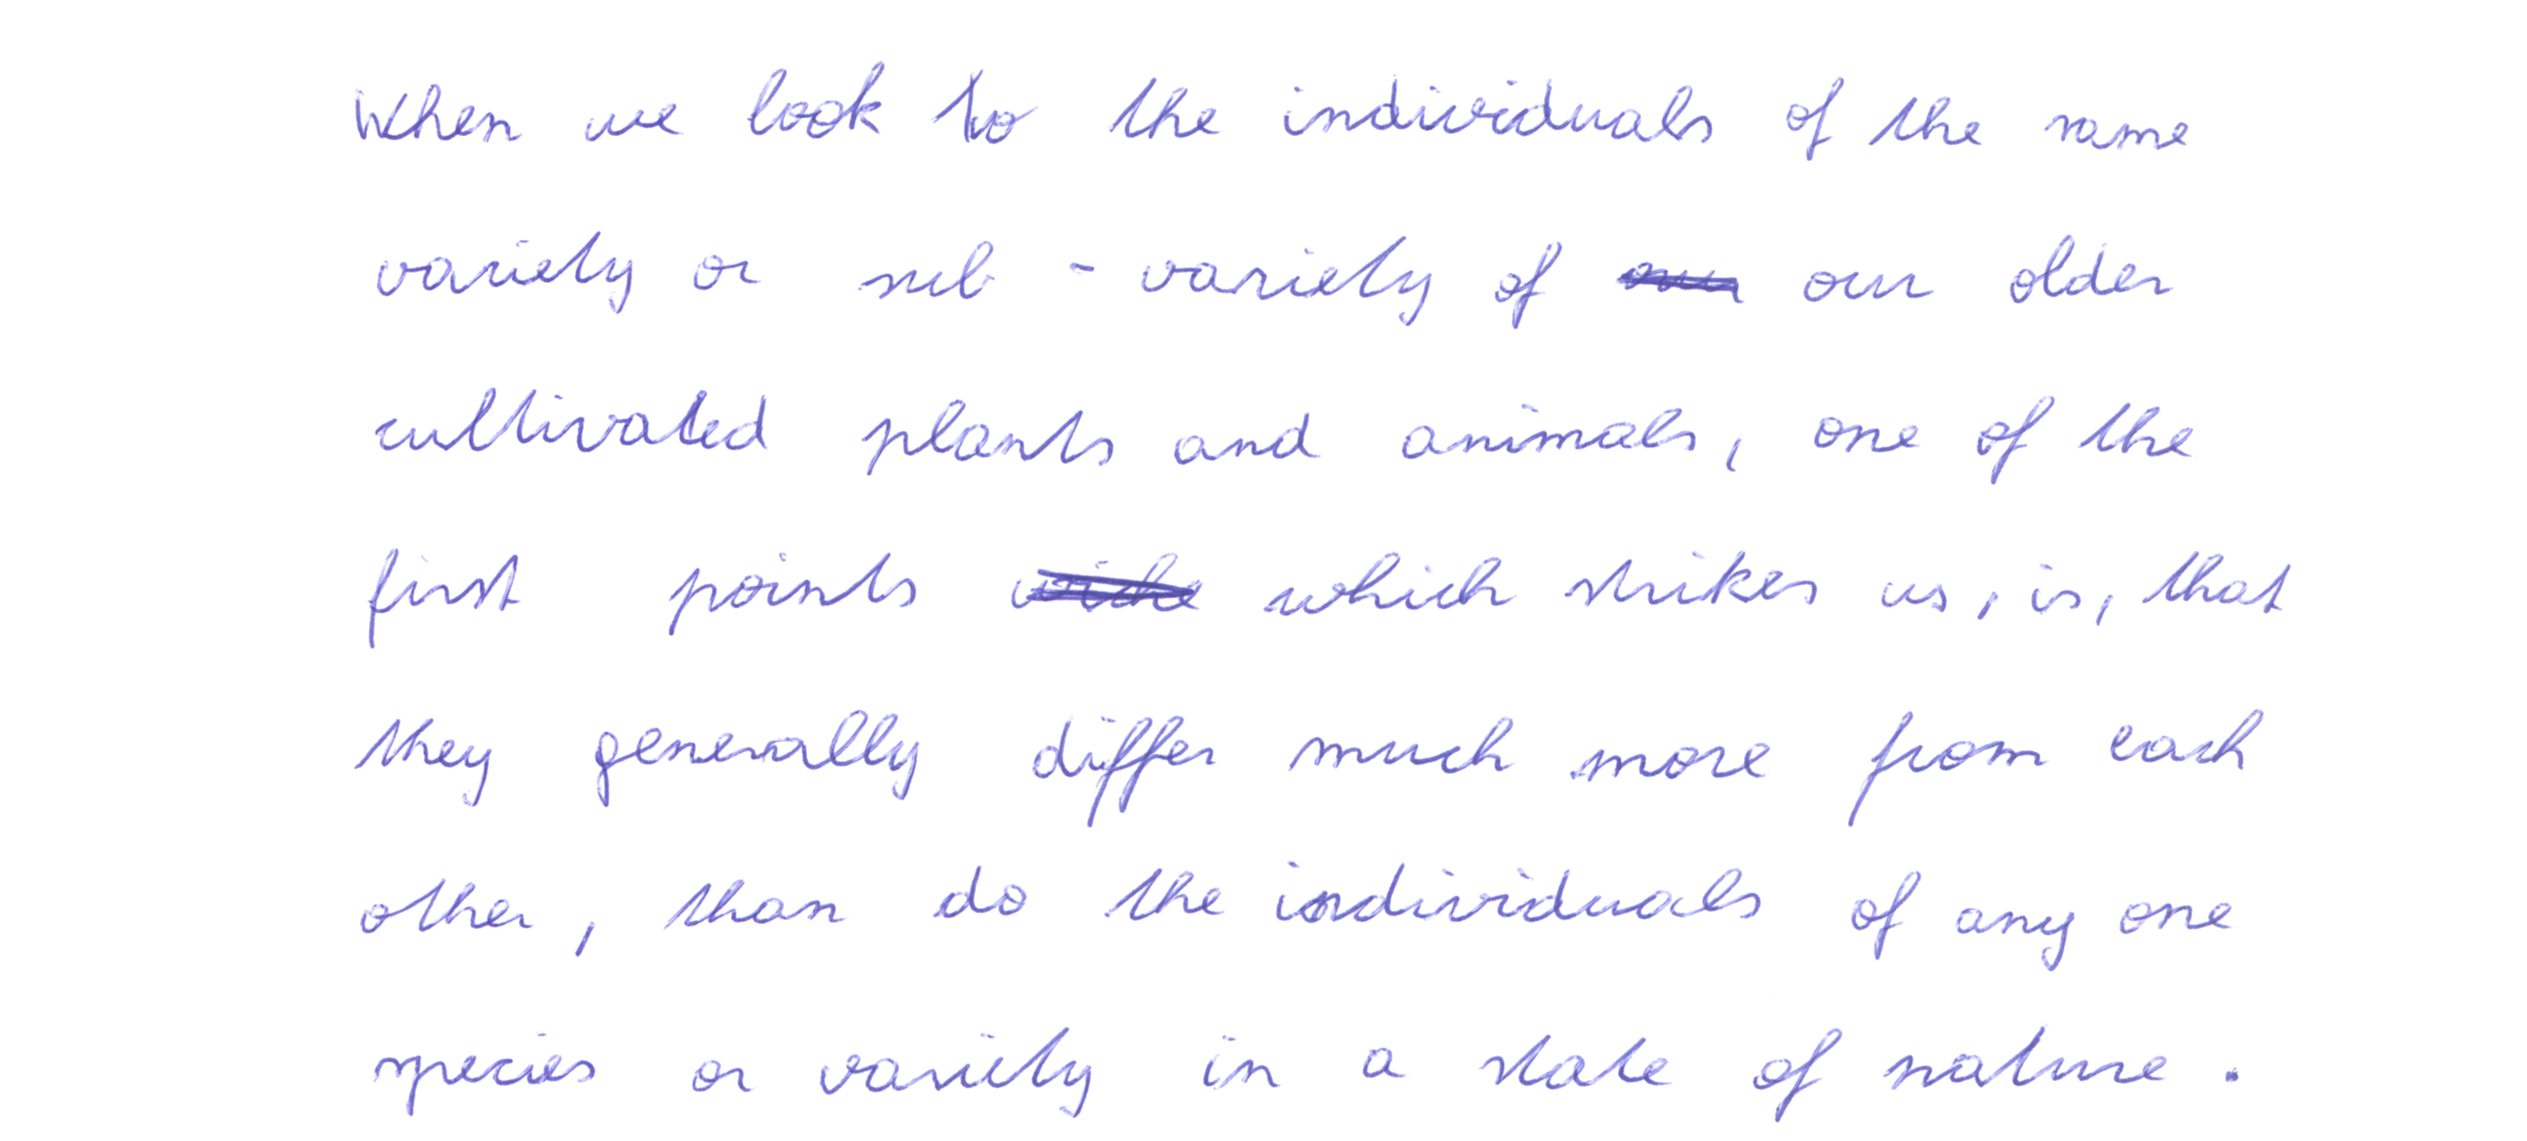 When we look to the individuals of the same
variety or sub - variety of our older
cultivated plants and animals, one of the
first points which strikes us, is, that
they generally differ much more from each
other, than do the individuals of any one
species or variety in a state of nature.